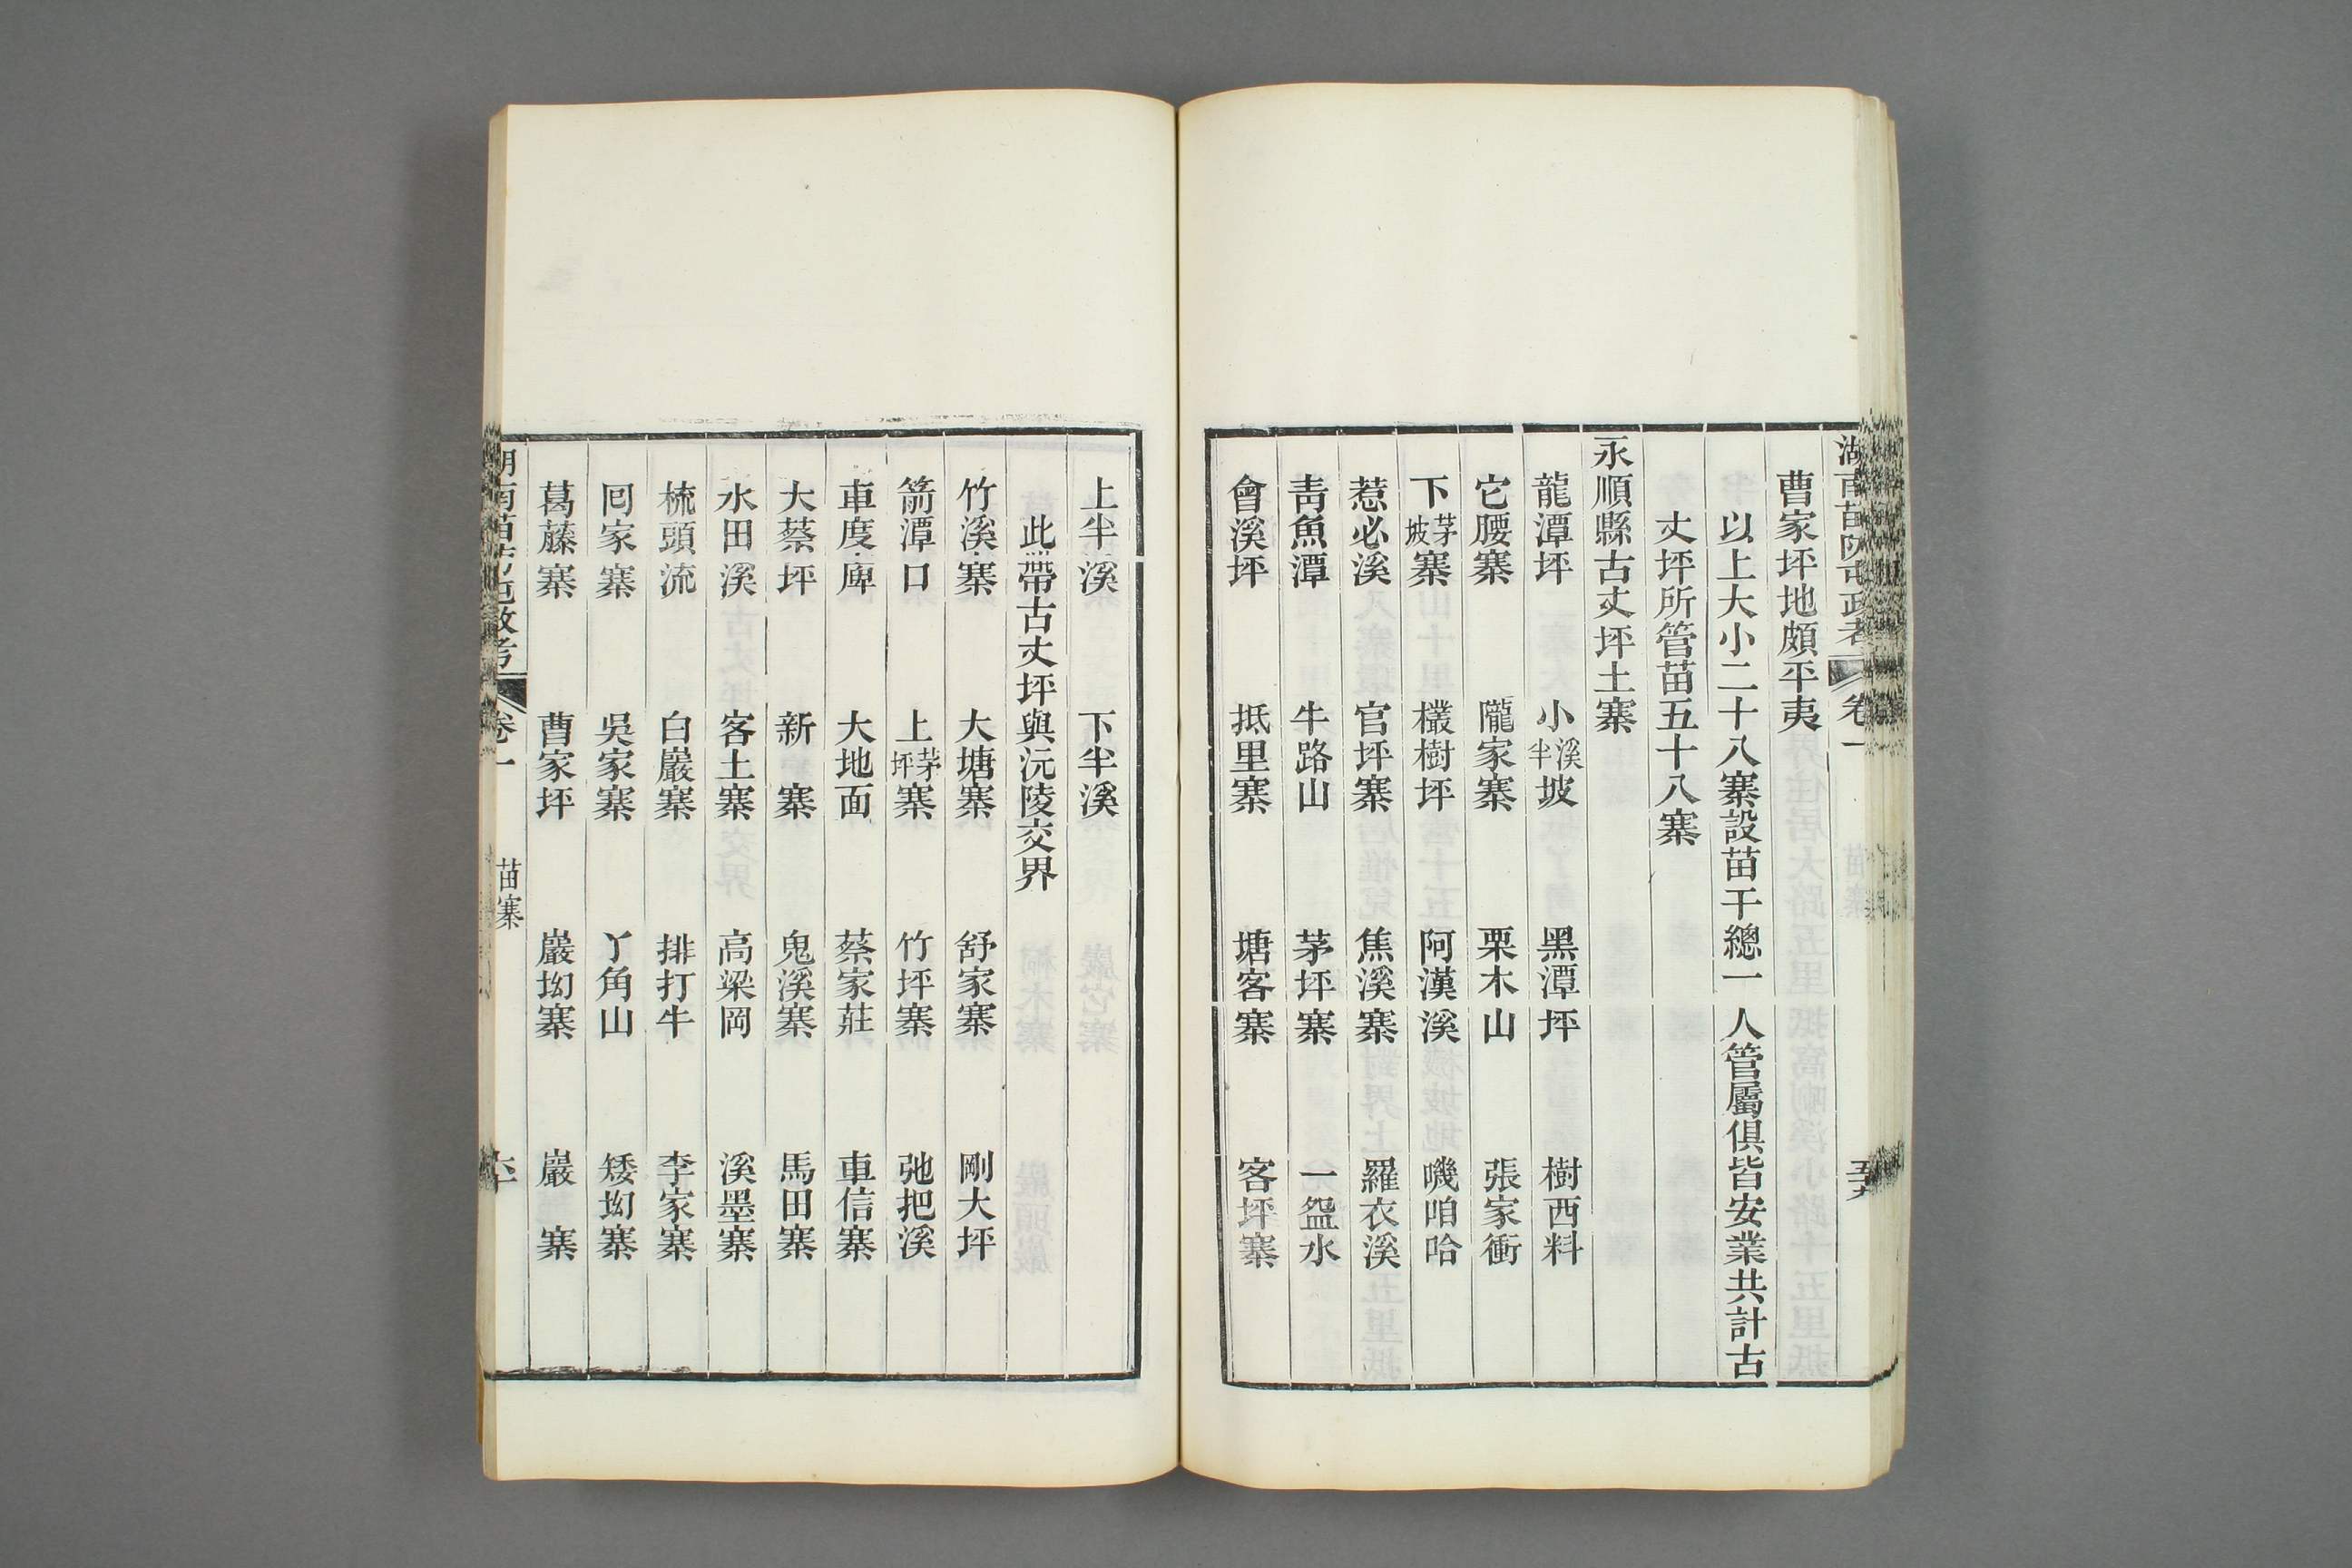 湖南苗防屯政考 卷一
曹家坪地頗平夷
以上大小二十八寨設苗千總一人管屬俱皆安業共計古
丈坪所管苗五十八寨
永順縣古丈坪土寨
龍潭坪 小溪半坡 黑潭坪 樹西料
它腰寨 隴家寨 栗木山 張家衝
下茅坡寨 欉樹坪 阿漢溪 嘰咱哈
惹必溪 官坪寨 焦溪寨 羅衣溪
青魚潭 牛路山 茅坪寨 一盌水
會溪坪 抵里寨 塘客寨 客坪寨
上半溪 下半溪
此帶古丈坪與沅陵交界
竹溪寨 大塘寨 舒家寨 剛大坪
箭潭口 上茅坪寨 竹坪寨 弛把溪
車度庫 大地面 蔡家莊 車信寨
大蔡坪 新寨 鬼溪寨 馬田寨
水田溪 客土寨 高梁岡 溪墨寨
梳頭流 白巖寨 排打牛 李家寨
囘家寨 吳家寨 丫角山 矮坳寨
葛藤寨 曹家坪 巖坳寨 巖寨
湖南苗防屯政考 卷一 苗寨 六十